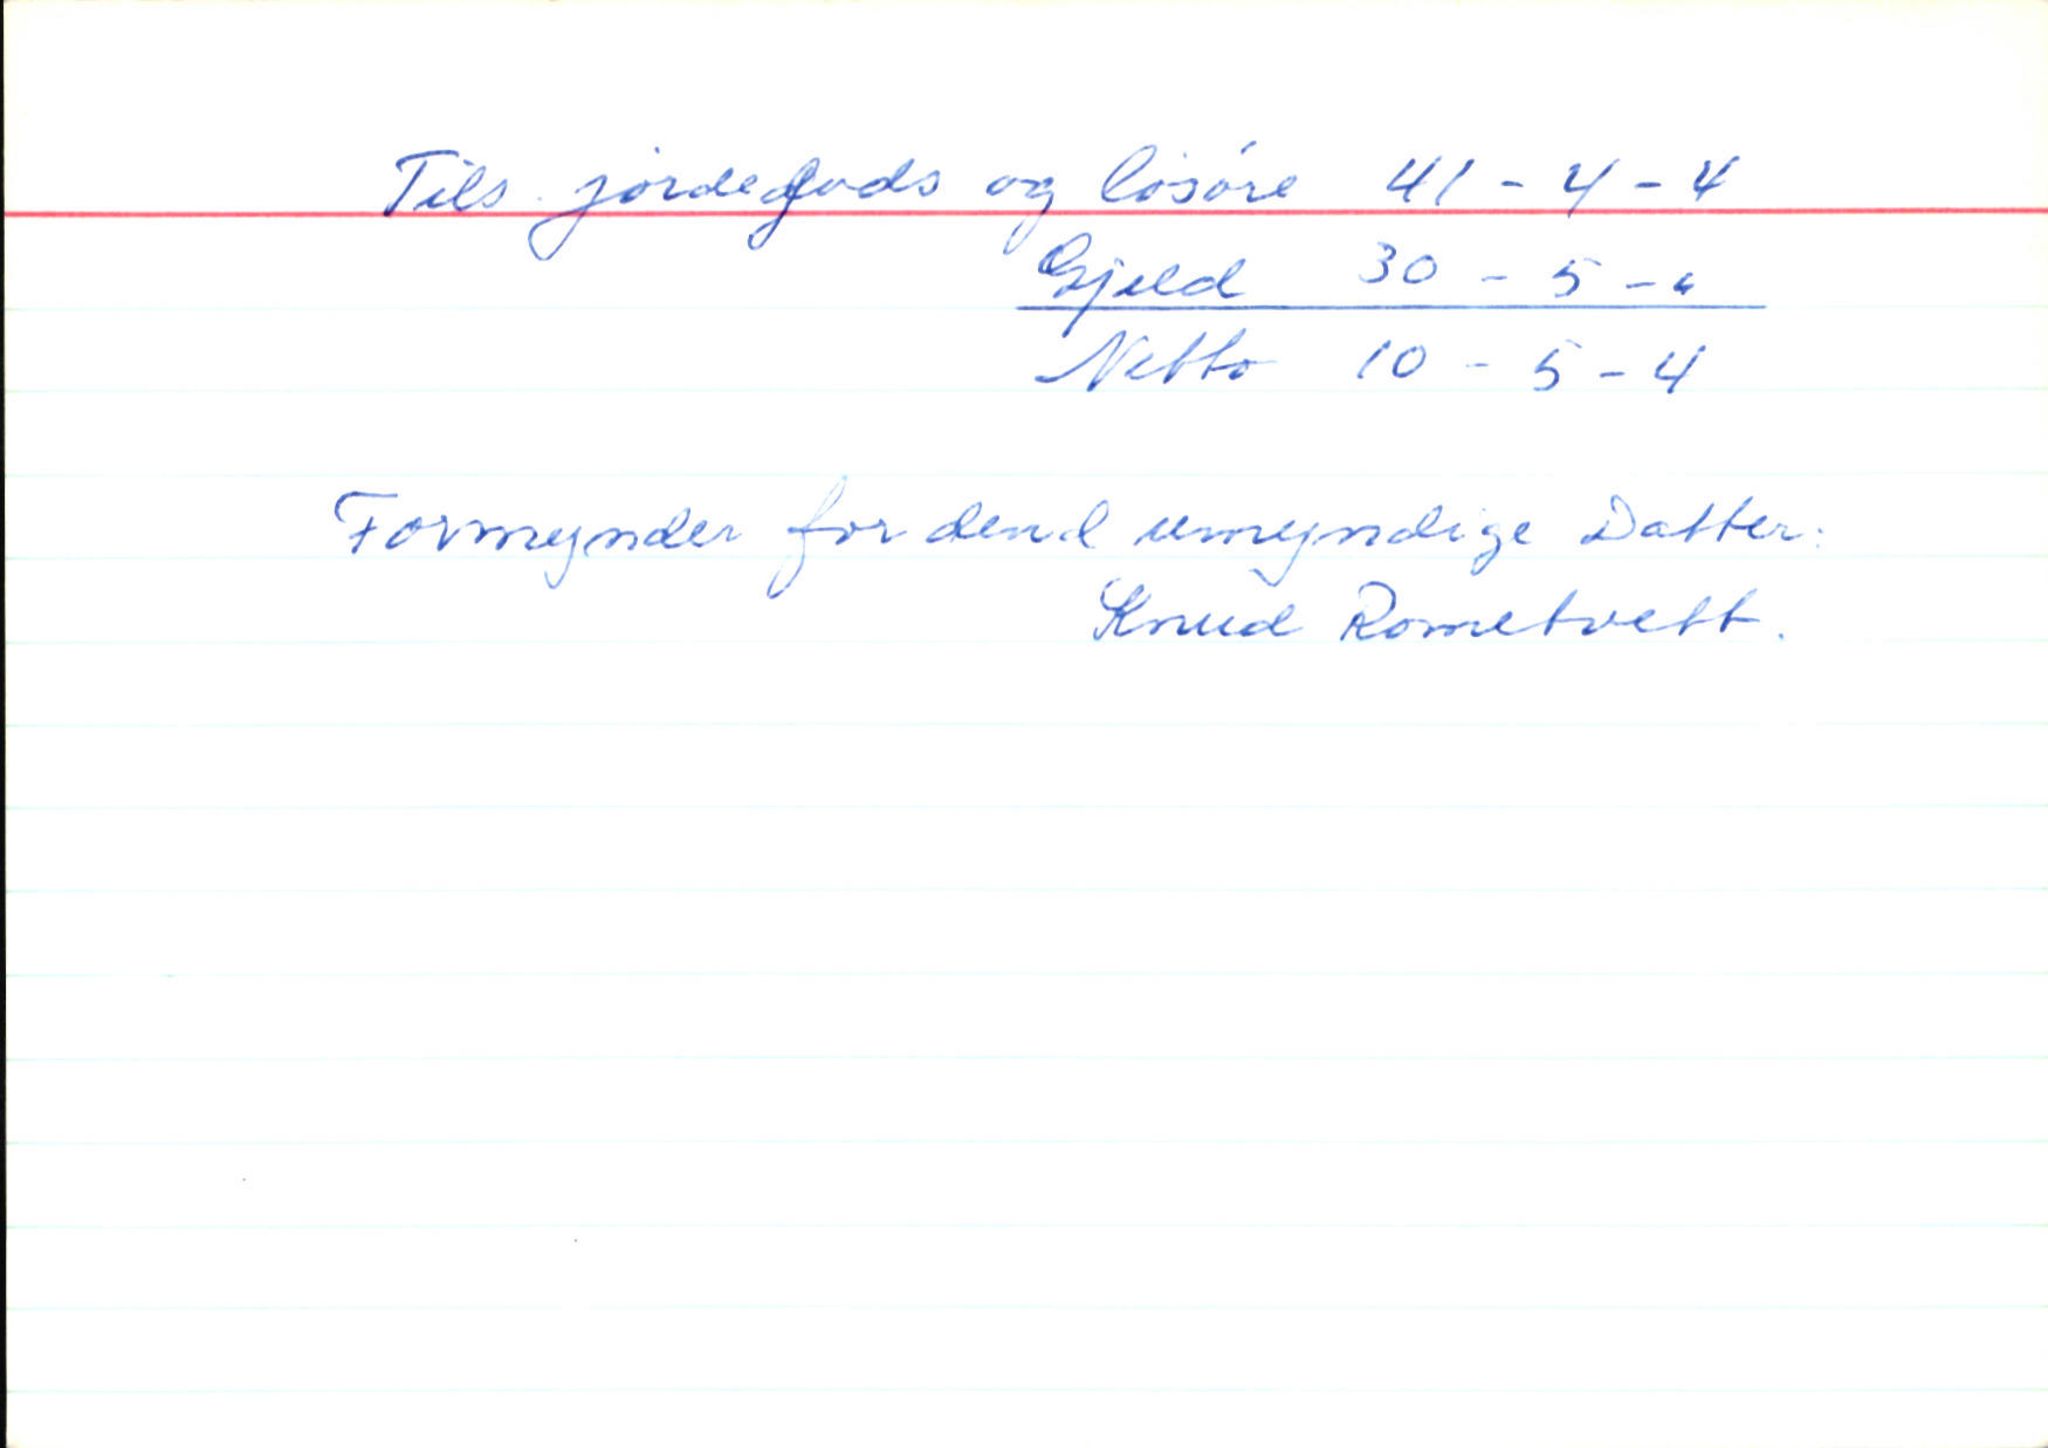 Tils. jordegods og løsøre 41 - 4 - 4
Gjeld 30 - 5 - "
Netto 10 - 5 - 4
Formynder for dend umyndige Datter:
Knud Rometvett.